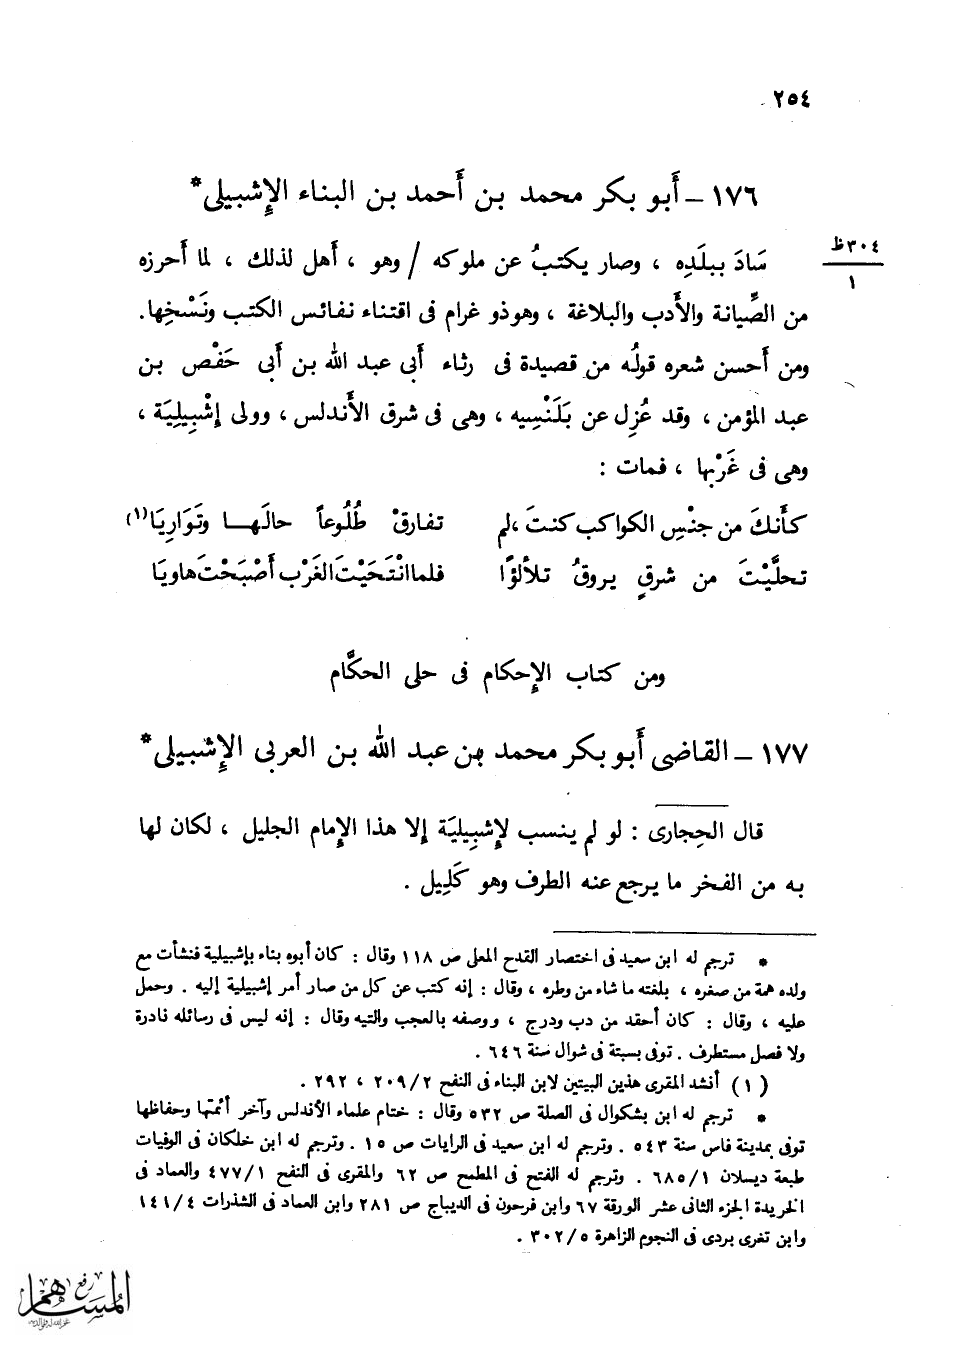 ٢٥٤
١٧٦ – أَبو بكر محمد بن أَحمد بن البناء الإِشبيلى*
٣٠٤ظ
١
سَادَ ببلَدِه ، وصار يكتبُ عن ملوكه / وهو ، أَهل لذلك ، لما أَحرزه
من الصِّيانة والأَدب والبلاغة ، وهوذو غرام فى اقتناء نفائس الكتب ونَسْخِها.
ومن أَحسن شعره قولُه من قصيدة فى رثاء أَبي عبد الله بن أَبي حَفْص بن
عبد المؤمن ، وقد عُزِل عن بَلَنْسِيه ، وهى فى شرق الأَندلس ، وولى إِشْبِيلِيَة ،
وهى فى غَرْبها ، فمات :
كأَنكَ من جنْسِ الكواكب كنتَ ،لم تفارقْ طُلُوعاً حالَهـا وتَوَارِيَا(١)
تحلَّيْتَ من شرقٍ يروقُ تلألؤًا فلماانْتَحَيْتَ الغَرْب أَصْبَحْتَ هاويَا
ومن كتاب الإِحكام فى حلى الحكَّام
١٧٧ – القاضى أَبو بكر محمد بن عبد الله بن العربى الإِشبيلى*
قال الحِجارى : لو لم ينسب لإِشبِيليَة إلا هذا الإِمام الجليل ، لكان لها
به من الفخر ما يرجع عنه الطرف وهو كَلِيل .
* ترجم له ابن سعيد فى اختصار القدح المعلى ص ١١٨ وقال : كان أبوه بناء بإشبيلية فنشأت مع
ولده همة من صغره ، بلغته ما شاء من وطره ، وقال : إنه كتب عن كل من صار أمر إشبيلية إليه . وحمل
عليه ، وقال : كان أحقد من دب ودرج ، ووصفه بالعجب والتيه وقال : إنه ليس فى رسائله نادرة
ولا فصل مستطرف . توفى بسبتة فى شوال سنة ٦٤٦ .
(١) أنشد المقرى هذين البيتين لابن البناء فى النفح ٢٠٩/٢ ، ٢٩٢ .
* ترجم له ابن بشكوال فى الصلة ص ٥٣٢ وقال : ختام علماء الأندلس وآخر أئمتها وحفاظها
توفى بمدينة فاس سنة ٥٤٣ . وترجم له ابن سعيد فى الرايات ص ١٥ . وترجم له ابن خلكان فى الوفيات
طبعة ديسلان ٦٨٥/١ . وترجم له الفتح فى المطمح ص ٦٢ والمقرى فى النفح ٤٧٧/١ والعماد فى
الخريدة الجزء الثانى عشر الورقة ٦٧ وابن فرحون فى الديباج ص ٢٨١ وابن العماد فى الشذرات ١٤١/٤
وابن تغرى بردى فى النجوم الزاهرة ٣٠٢/٥ .
رفع
المساهم